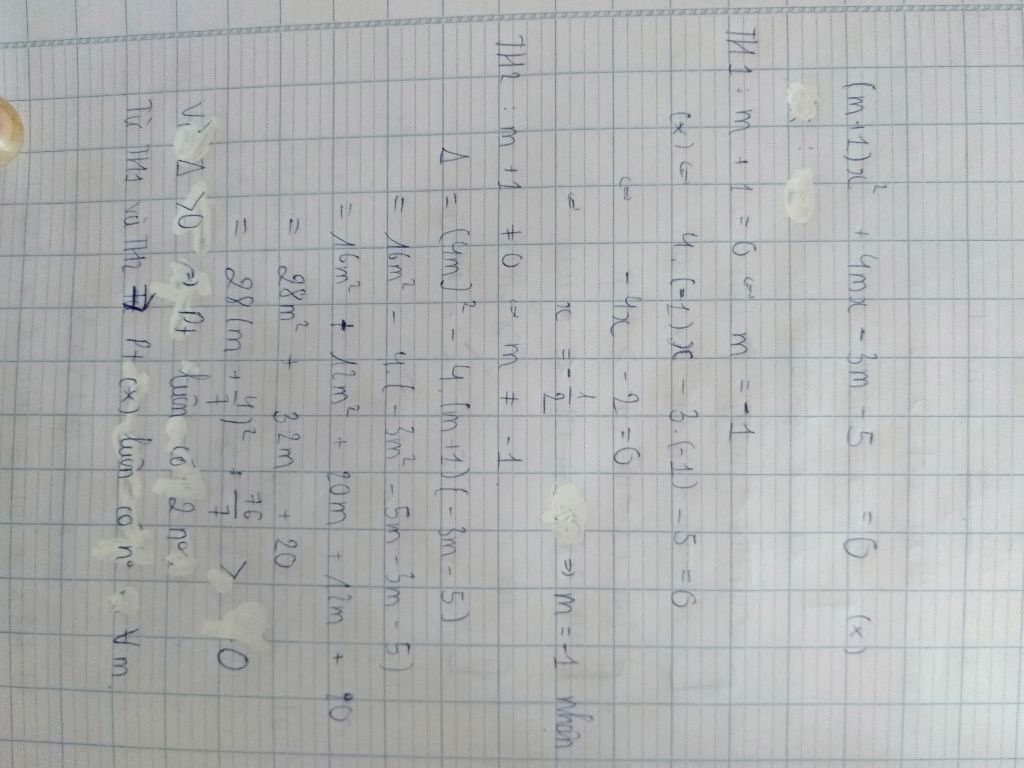 (m+1)x² + 4mx - 3m - 5 = 0 (x)
TH1: m + 1 = 0 ⇔ m = -1
(x) ⇔ 4.(-1)x - 3.(-1) - 5 = 0
⇔ -4x - 2 = 0
⇔ x = -1/2 ⇒ m = -1 nhận
TH2: m + 1 ≠ 0 ⇔ m ≠ -1
Δ = (4m)² - 4.(m+1)(-3m-5)
= 16m² - 4.(-3m² - 5m - 3m - 5)
= 16m² + 12m² + 20m + 12m + 20
= 28m² + 32m + 20
= 28(m + 4/7)² + 76/7 > 0
Vì Δ > 0 ⇒ Pt luôn có 2 n°
Từ TH1 và TH2 ⇒ Pt (x) luôn có n° ∀m